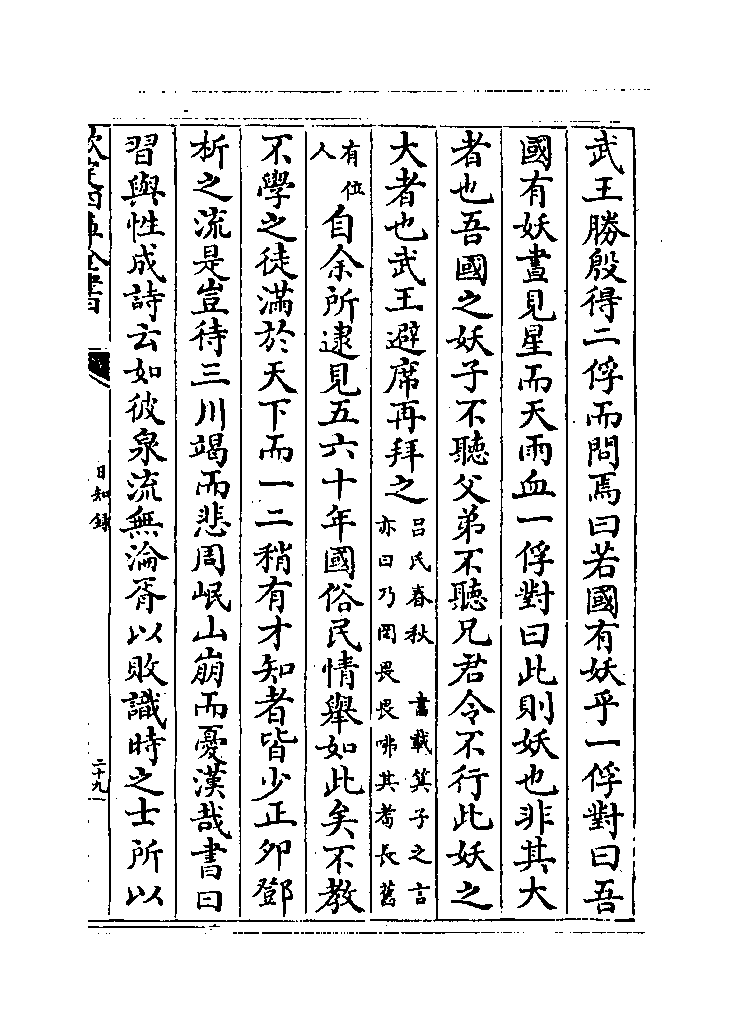 武王勝殷得二俘而問焉曰若國有妖乎一俘對曰吾
國有妖晝見星而天雨血一俘對曰此則妖也非其大
者也吾國之妖子不聽父弟不聽兄君令不行此妖之
大者也武王避席再拜之吕氏春秋 書載箕子之言
亦曰乃罔畏畏咈其耉長舊
有位
人自余所逮見五六十年國俗民情舉如此矣不教
不學之徒滿於天下而一二稍有才知者皆少正夘鄧
析之流是豈待三川竭而悲周岷山崩而憂漢哉書曰
習與性成詩云如彼泉流無淪胥以敗識時之士所以
欽定四庫全書
日知録
二十九